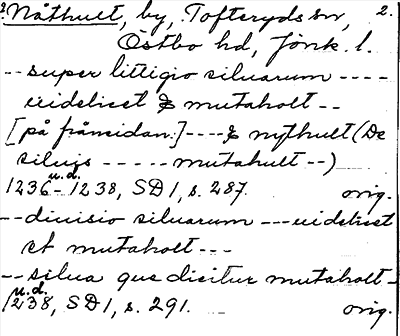 Nåthult, by, Tofteryds sn, 2.
Östbo hd, Jönk. l.
-- super littigio siluarum ----
uidelicet & mutaholt --
[på framsidan:] ---- & nythult (De
siluis ----- mutahult --)
1236-1238 u.d., SD 1, s. 287. orig.
-- diuisio siluarum --- uidelicet
et mutaholt ---
-- silua que dicitur mutaholt -
1238 u.d., SD 1, s. 291. orig.